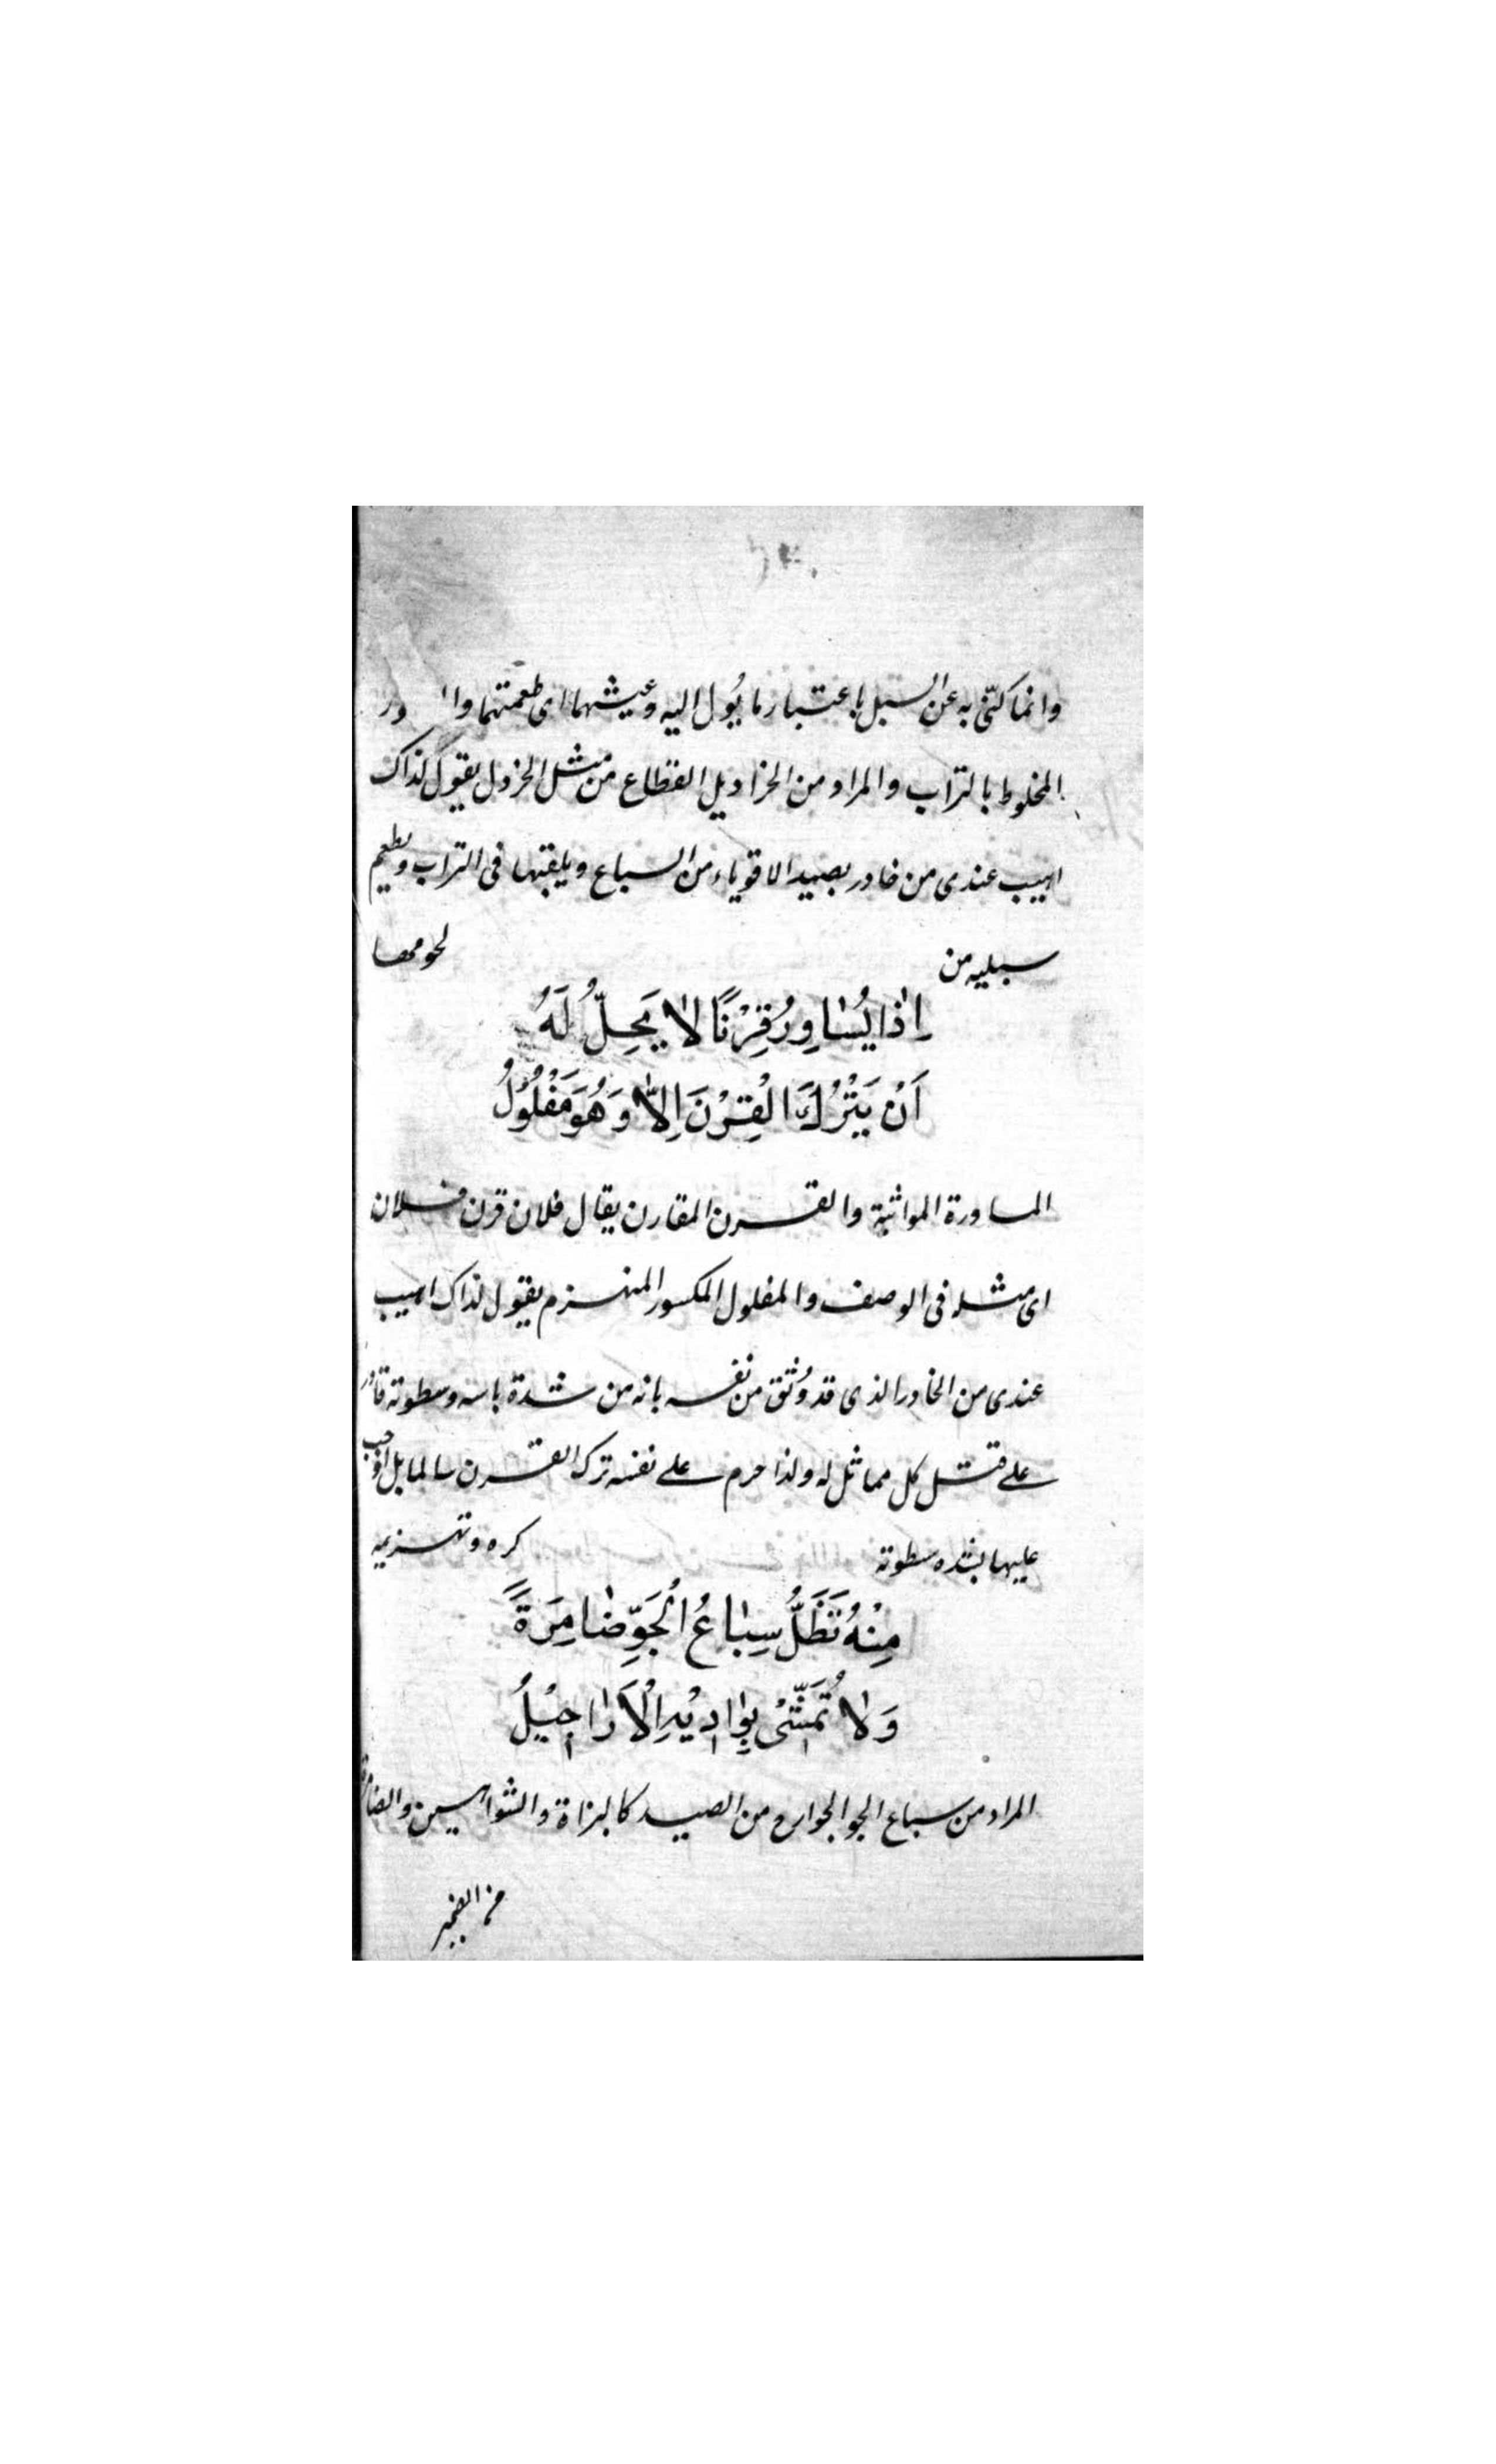 وانما كنّى به عن الشبل باعتبار ما يؤل اليه وعيشهما اى طعمتهما
المخلوط بالتراب والمراد من الخراديل القطاع من مثل الخردل يقول لذاك
اهيب عندى من خادر يصيد الاقوياء من السباع ويلقيها فى التراب ويطعم
سبليه من لحومها
اِذٰا يُسٰاوِرُ قِرْنًا لاٰ يَحِلُّ لَهُ
اَنْ يَتْرُكَ الْقِرْنَ اِلاّٰ وَهُوَ مَفْلُوْلُ
المساورة المواثبة والقرن المقارن يقال فلان قرن فلان
اى مثله فى الوصف والمفلول المكسور المنهزم يقول لذاك اهيب
عندى من الخادر الذى قد وُثق من نفسه بانه من شدة باسه وسطوته قادر
على قتل كل مماثل له ولذا حرم على نفسه ترك القرن سالما بل اوجب
عليها بشده سطوته كره وتهزيمه
مِنْهُ تَظَلُّ سِبٰاعُ الْجَوِّ ضٰامِرَةً
وَلاٰ تُمَشّٰى بِوٰادِيْهِ الْاَرٰاجِيْلُ
المراد من سباع الجو الجوارح من الصيد كالبزاة والشواهين والضامرة
من الضمير